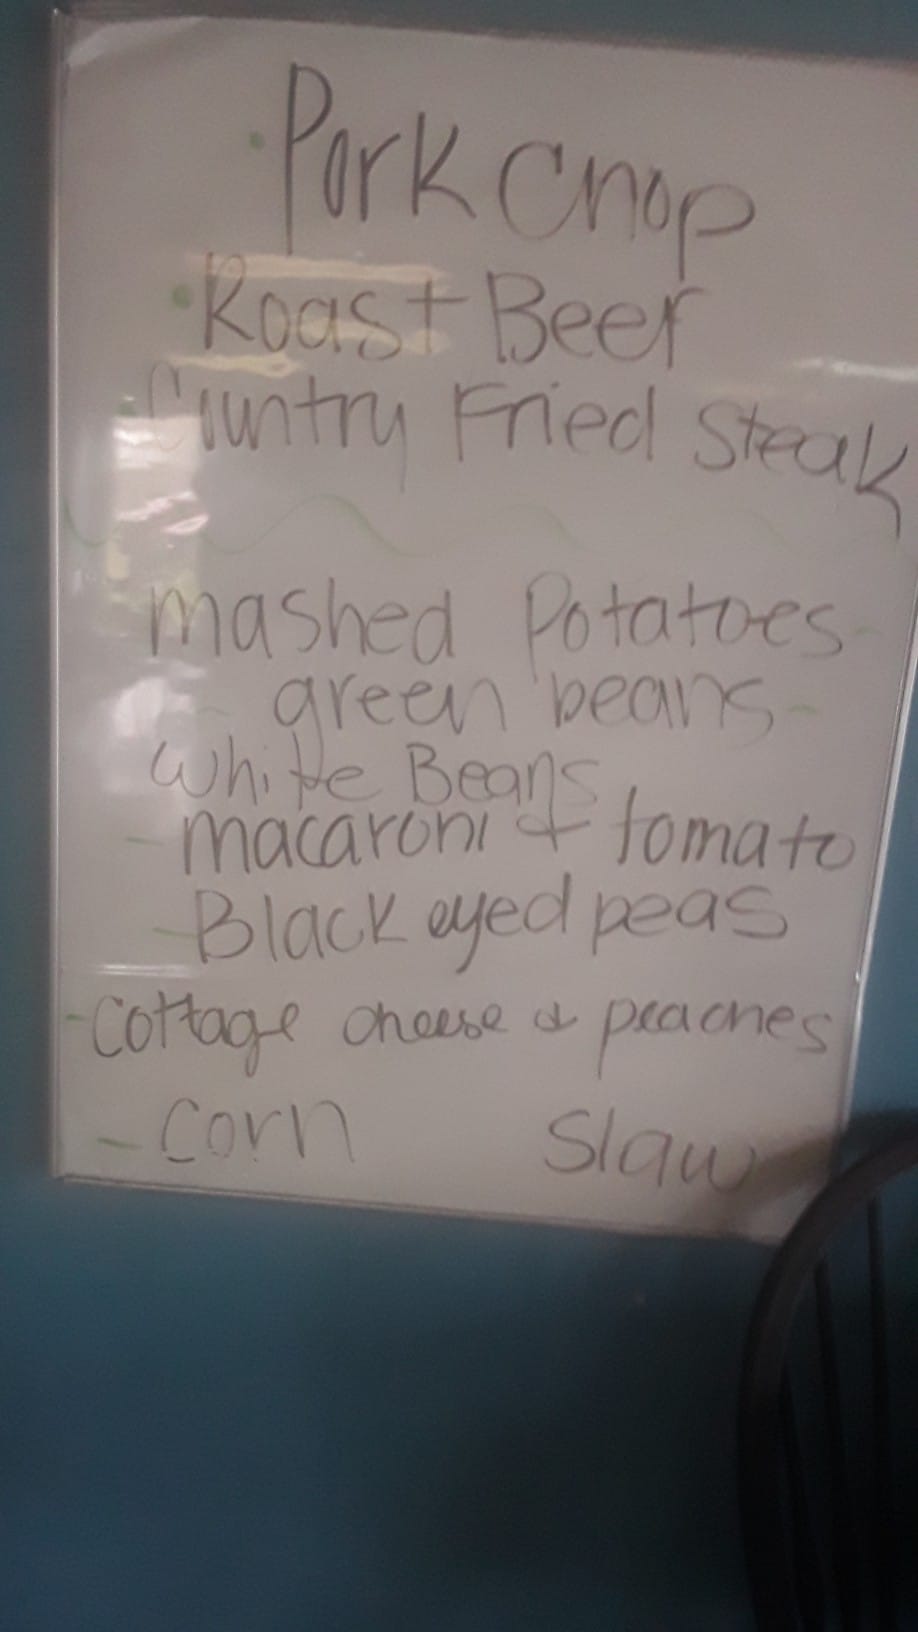 Pork Chop
Roast Beef
Country Fried Steak
mashed Potatoes
green beans
White Beans
macaroni & tomato
Black eyed peas
cottage cheese & peaches
corn Slaw